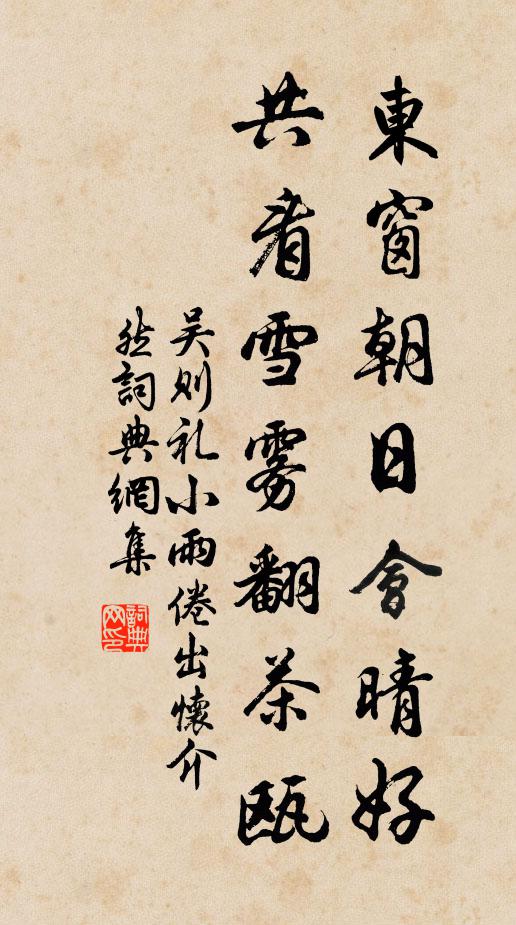 東窗朝日會晴好
共看雪雾翻茶甌
吴则礼小雨倦出懷介
然詞典網集
詞典网印